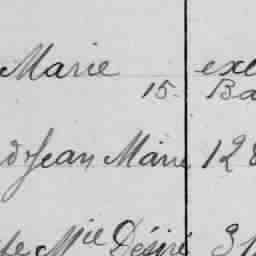 Marie exe
15. Ba
d Jean Marie 12
Mie Désiré 31